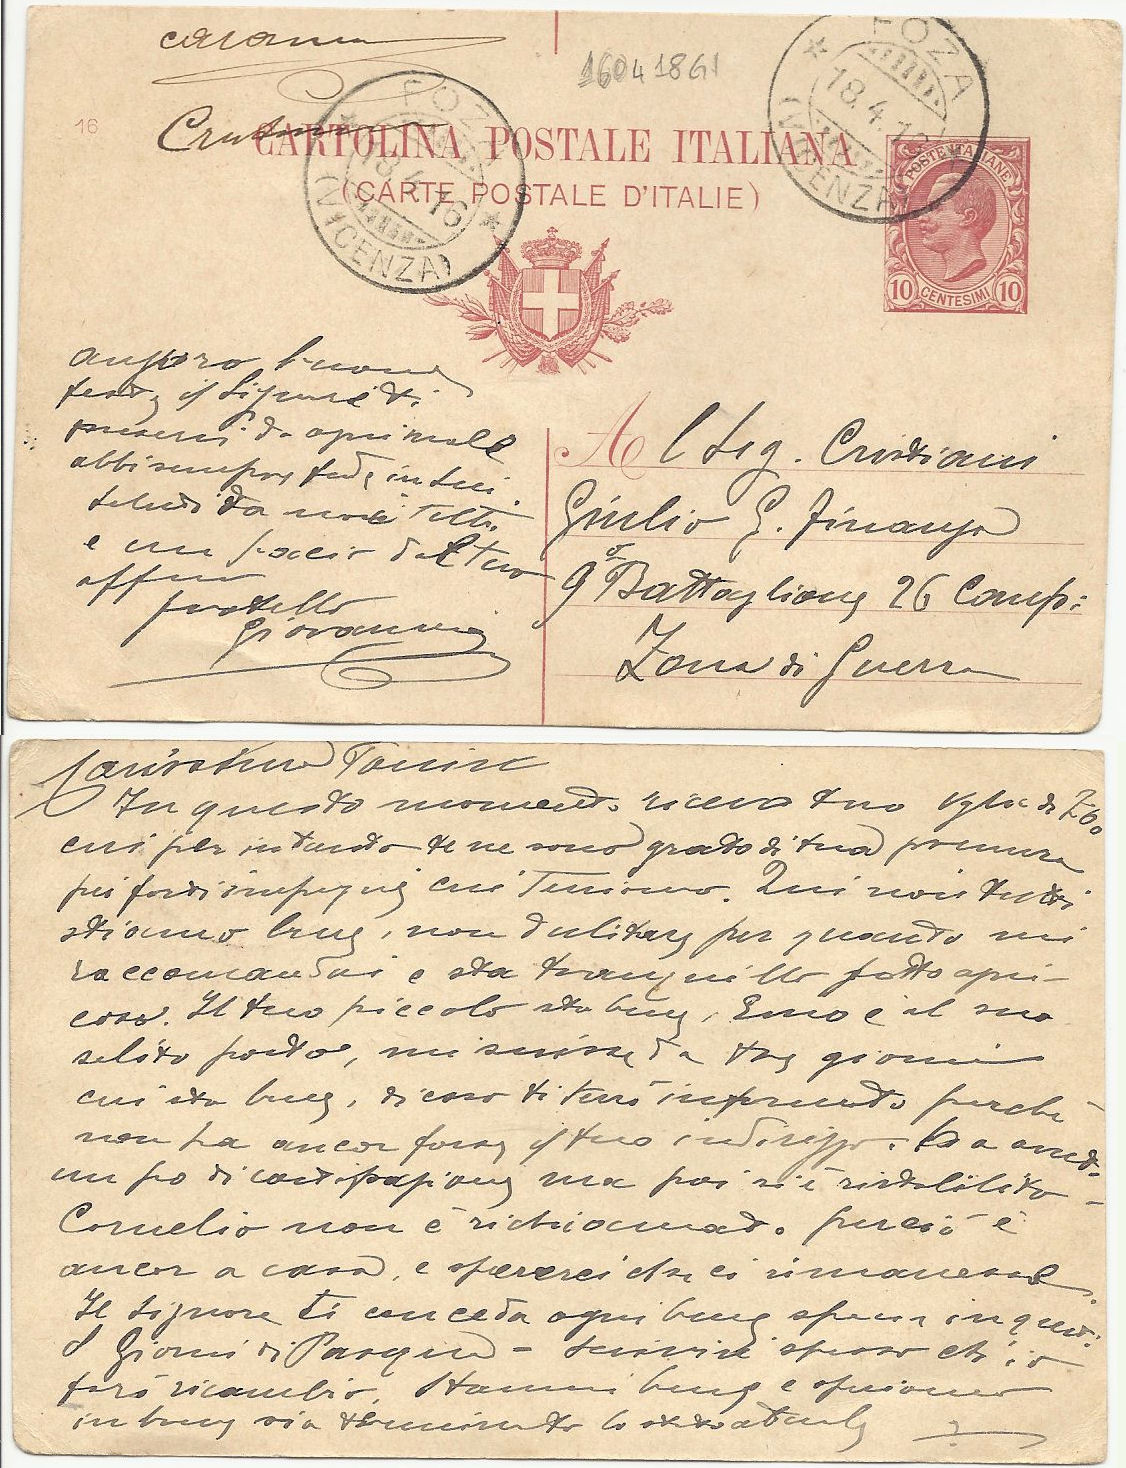 16
160418G1
CARTOLINA POSTALE ITALIANA
(CARTE POSTALE D'ITALIE)
FOZA
18.4.16
(VICENZA)
FOZA
18.4.16
(VICENZA)
POSTE ITALIANE
10 CENTESIMI 10
auguro buone
feste il Signore ti
preservi da ogni male
abbi sempre fede in Lui.
saluti da noi tutti
e un bacio dal tuo
affmo
fratello
Giovanni
Al Sig. Cristiani
Giulio G. Finanza
9º Battaglione 26 Comp:
Zona di Guerra
Carissimo
In questo momento ricevo tuo vglia di £60
cui per intanto te ne sono grato di tua premura
pei forti impegni cui Teniamo. Qui noi tutti
stiamo bene, non dubitare per quanto mi
raccomandai e sta tranquillo fatto ogni
cosa. Il tuo piccolo sta bene, Emo è al suo
solito posto, mi scrisse da tre giorni
cui sta bene, di cosa ti terrò informato perchè
non ha ancor forse il tuo indirizzo. Ha avuto
un po di costipazione ma poi si è ristabilito
Cornelio non è richiamato perciò è
ancor a casa, e spererei che ci rimanesse.
Il Signore ti conceda ogni bene spera in questi
S Giorni di Pasqua - scrivi spesso ch'io
farò ricambio, Stammi bene e speriamo
in bene sia terminato lo